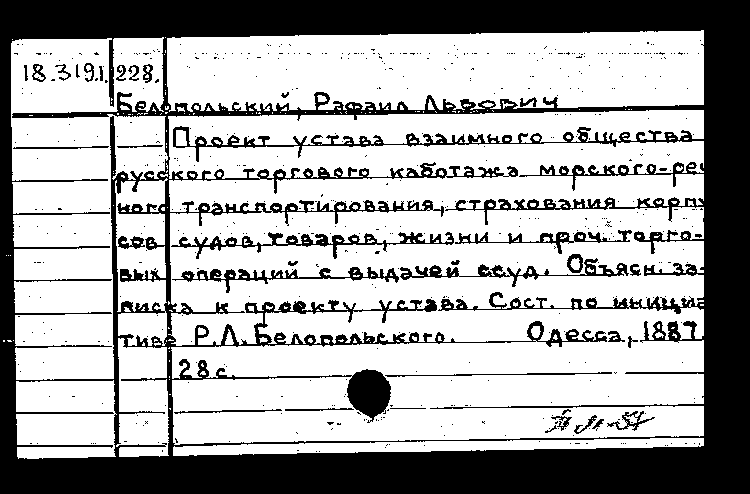 18.319.1.228.
Белопольский, Рафаил Львович
Проект устава взаимного общества
русского торгового каботажа морского-реч
ного транспортирования, страхования корпу
сов судов, товаров, жизни и проч. торго-
вых операций с выдачей ссуд. Объясн. за-
писка к проекту устава. Сост. по инициа
тиве Р.Л. Белопольского. Одесса, 1887.
28 с.